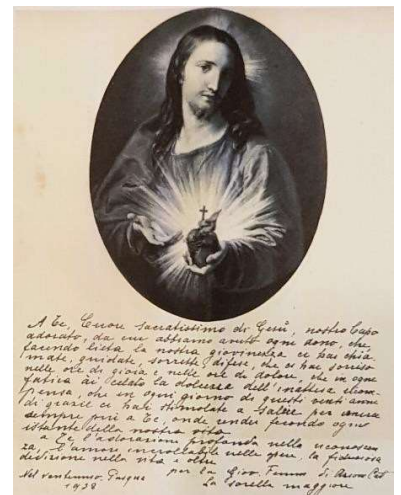 A Te, Cuore Sacratissimo di Gesù, nostro Capo
adorato, da cui abbiamo avuto ogni dono, che,
facendo lieta la nostra giovinezza ci hai chia-
mate, guidate, sorrette, difese, che ci hai sorriso
nelle ore di gioia e nelle ore di dolore, che in ogni
fatica ai celato la dolcezza dell'inattesa ricom-
pensa, che in ogni giorno di questi venti anni
di grazie ci hai stimolate a salire per venire
sempre più a Te, onde render fecondo ogni
istante della nostra vita
a Te l'adorazione profonda nella riconoscen
za, l'amore incrollabile nelle opere, la fiduciosa
dedizione nella vita e oltre
per la Giov. Femm. di Azione Cat
Nel ventennio, Pasqua
1938
La Sorella maggiore